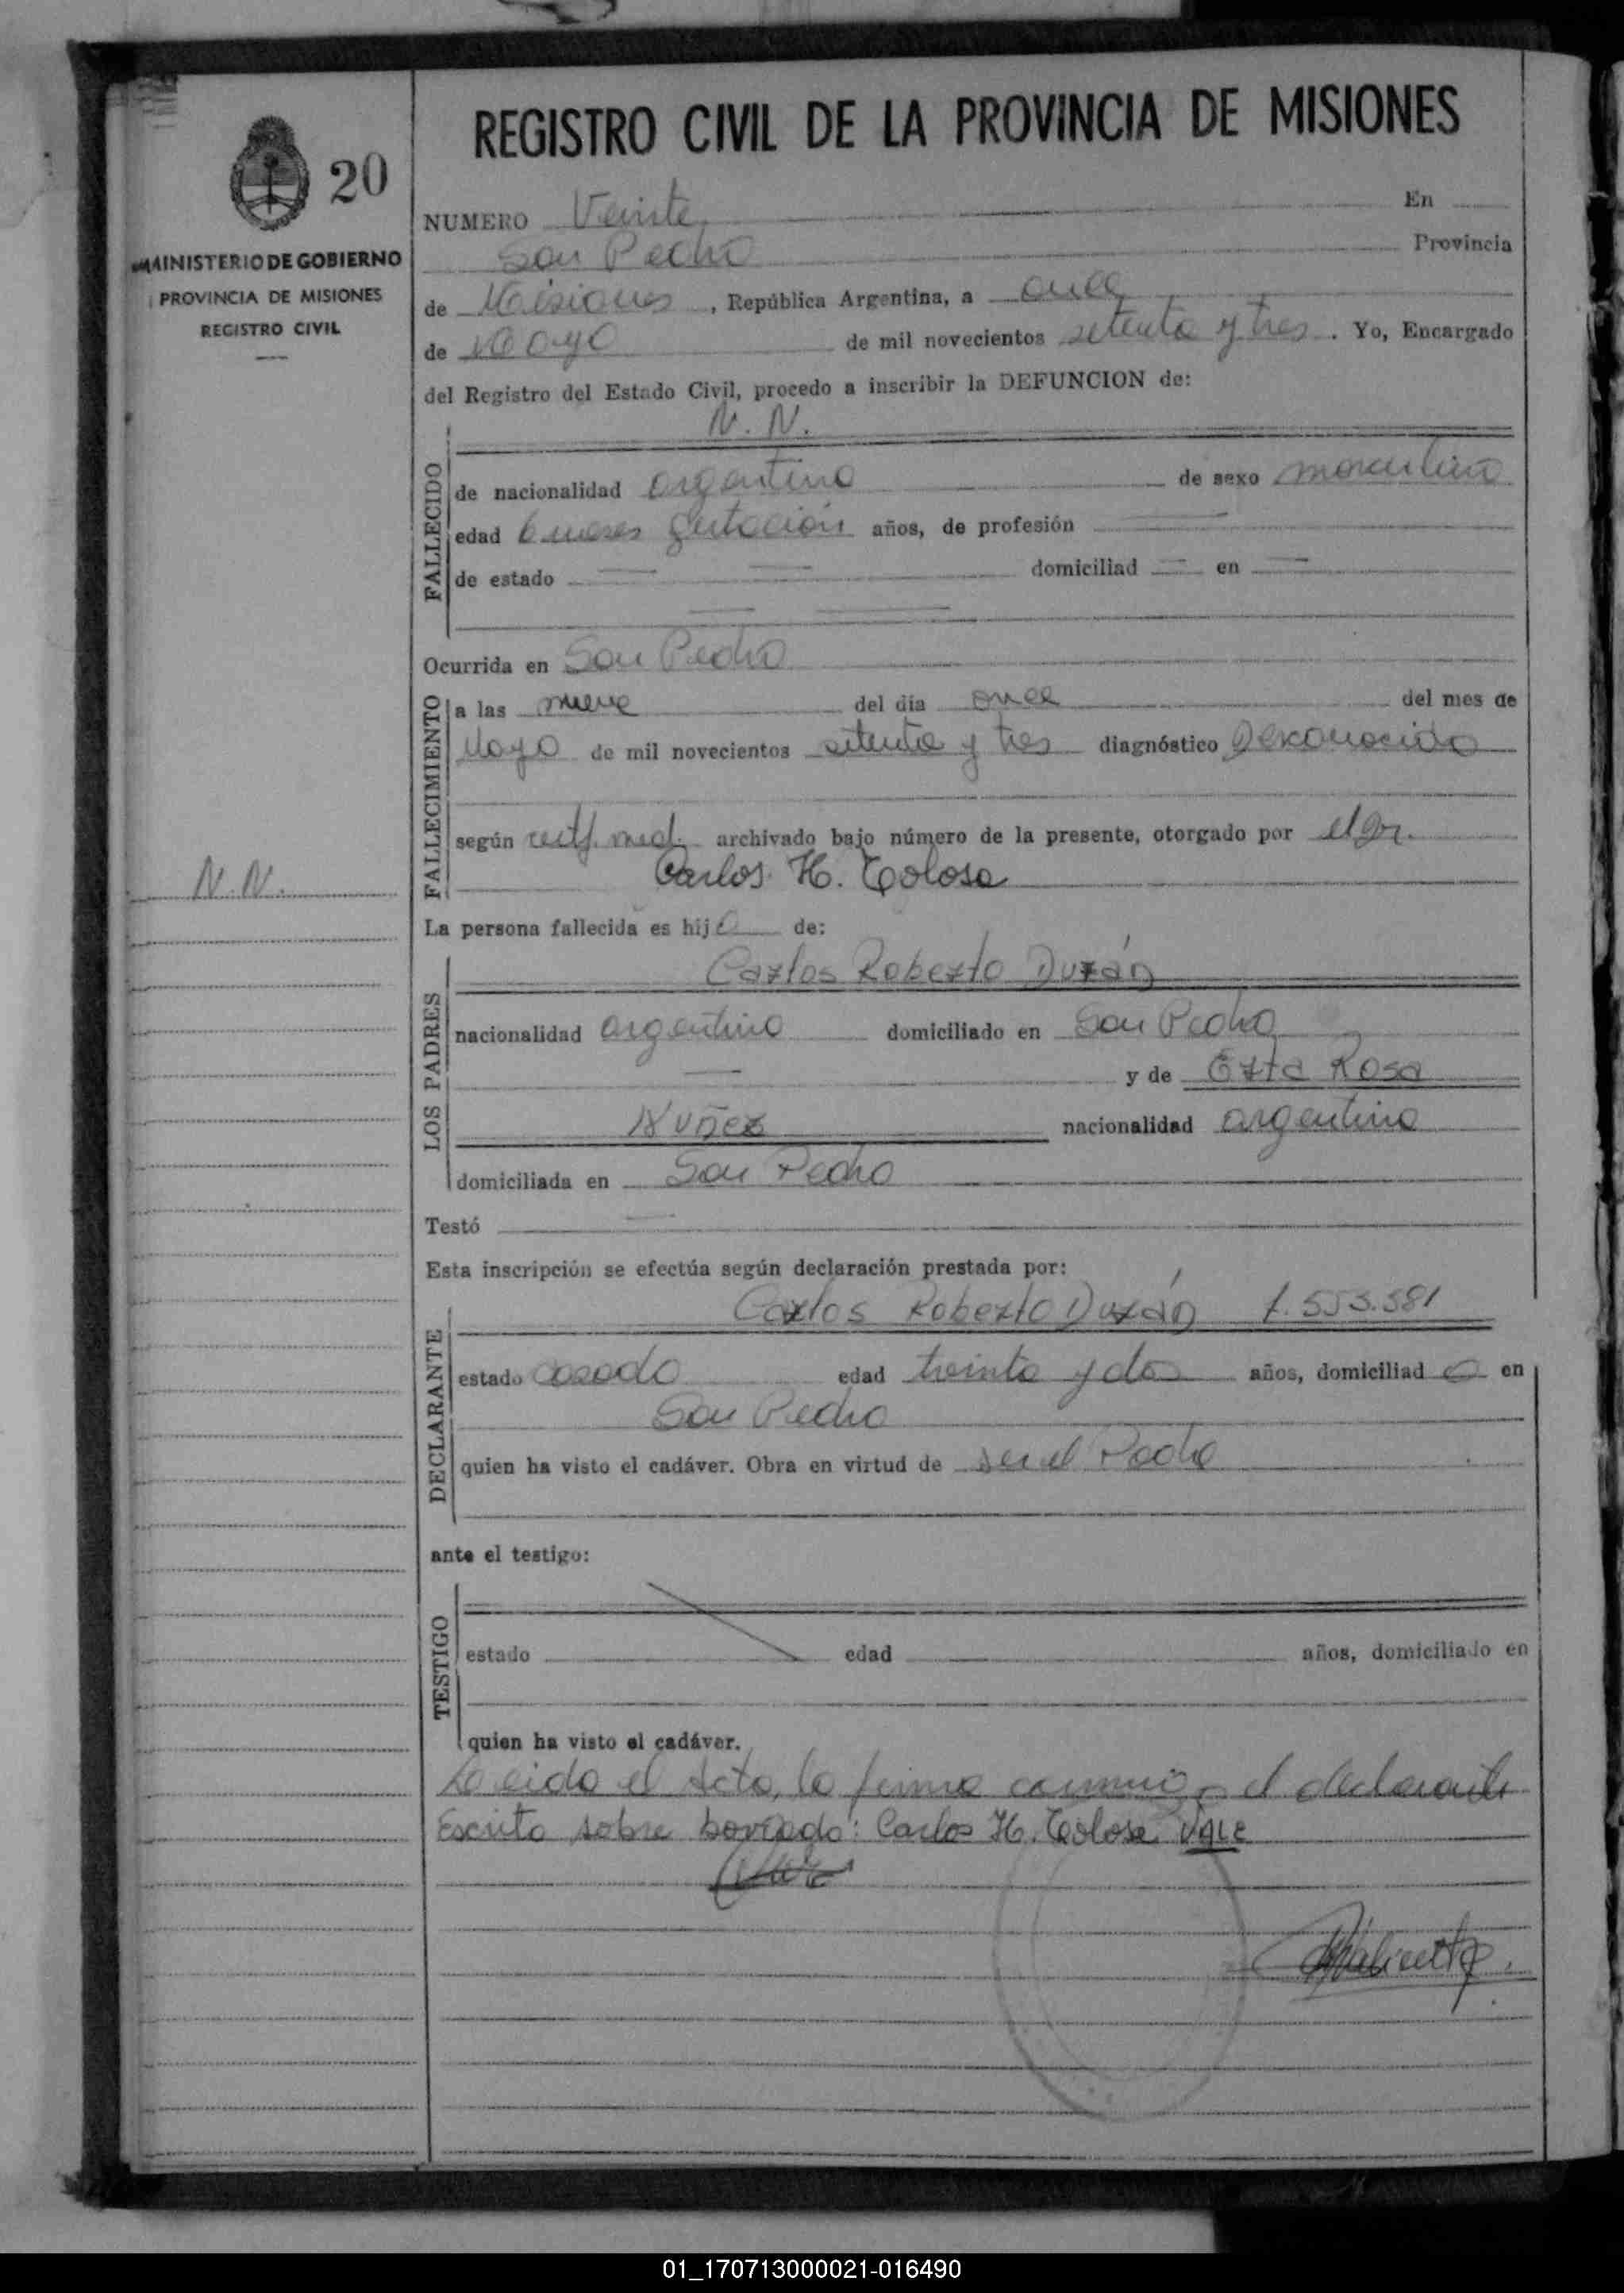 REGISTRO CIVIL DE LA PROVINCIA DE MISIONES
20
MINISTERIO DE GOBIERNO
PROVINCIA DE MISIONES
REGISTRO CIVIL
NUMERO Veinte En
San Pedro Provincia
de Misiones, República Argentina, a once
de Mayo de mil novecientos setenta y tres. Yo, Encargado
del Registro del Estado Civil, procedo a inscribir la DEFUNCION de:
N. N.
FALLECIDO
de nacionalidad argentina de sexo masculino
edad 6 meses gestación años, de profesión
de estado domiciliad en
Ocurrida en San Pedro
FALLECIMIENTO
a las nueve del día once del mes de
Mayo de mil novecientos setenta y tres diagnóstico Desconocido
según certf. med. archivado bajo número de la presente, otorgado por el Dr.
Carlos H. Tolosa
N. N.
La persona fallecida es hijo de:
LOS PADRES
Carlos Roberto Durán
nacionalidad argentino domiciliado en San Pedro
y de Rosa
Nuñez nacionalidad argentina
domiciliada en San Pedro
Testó
Esta inscripción se efectúa según declaración prestada por:
DECLARANTE
Carlos Roberto Durán 7.553.581
estado casado edad treinta y dos años, domiciliad o en
San Pedro
quien ha visto el cadáver. Obra en virtud de ser el Padre
ante el testigo:
TESTIGO
estado edad años, domiciliado en
quien ha visto el cadáver.
Leida el Acta, la firma conmigo el declarante
Escrito sobre borrado: Carlos H. Tolosa VALE
01_170713000021-016490